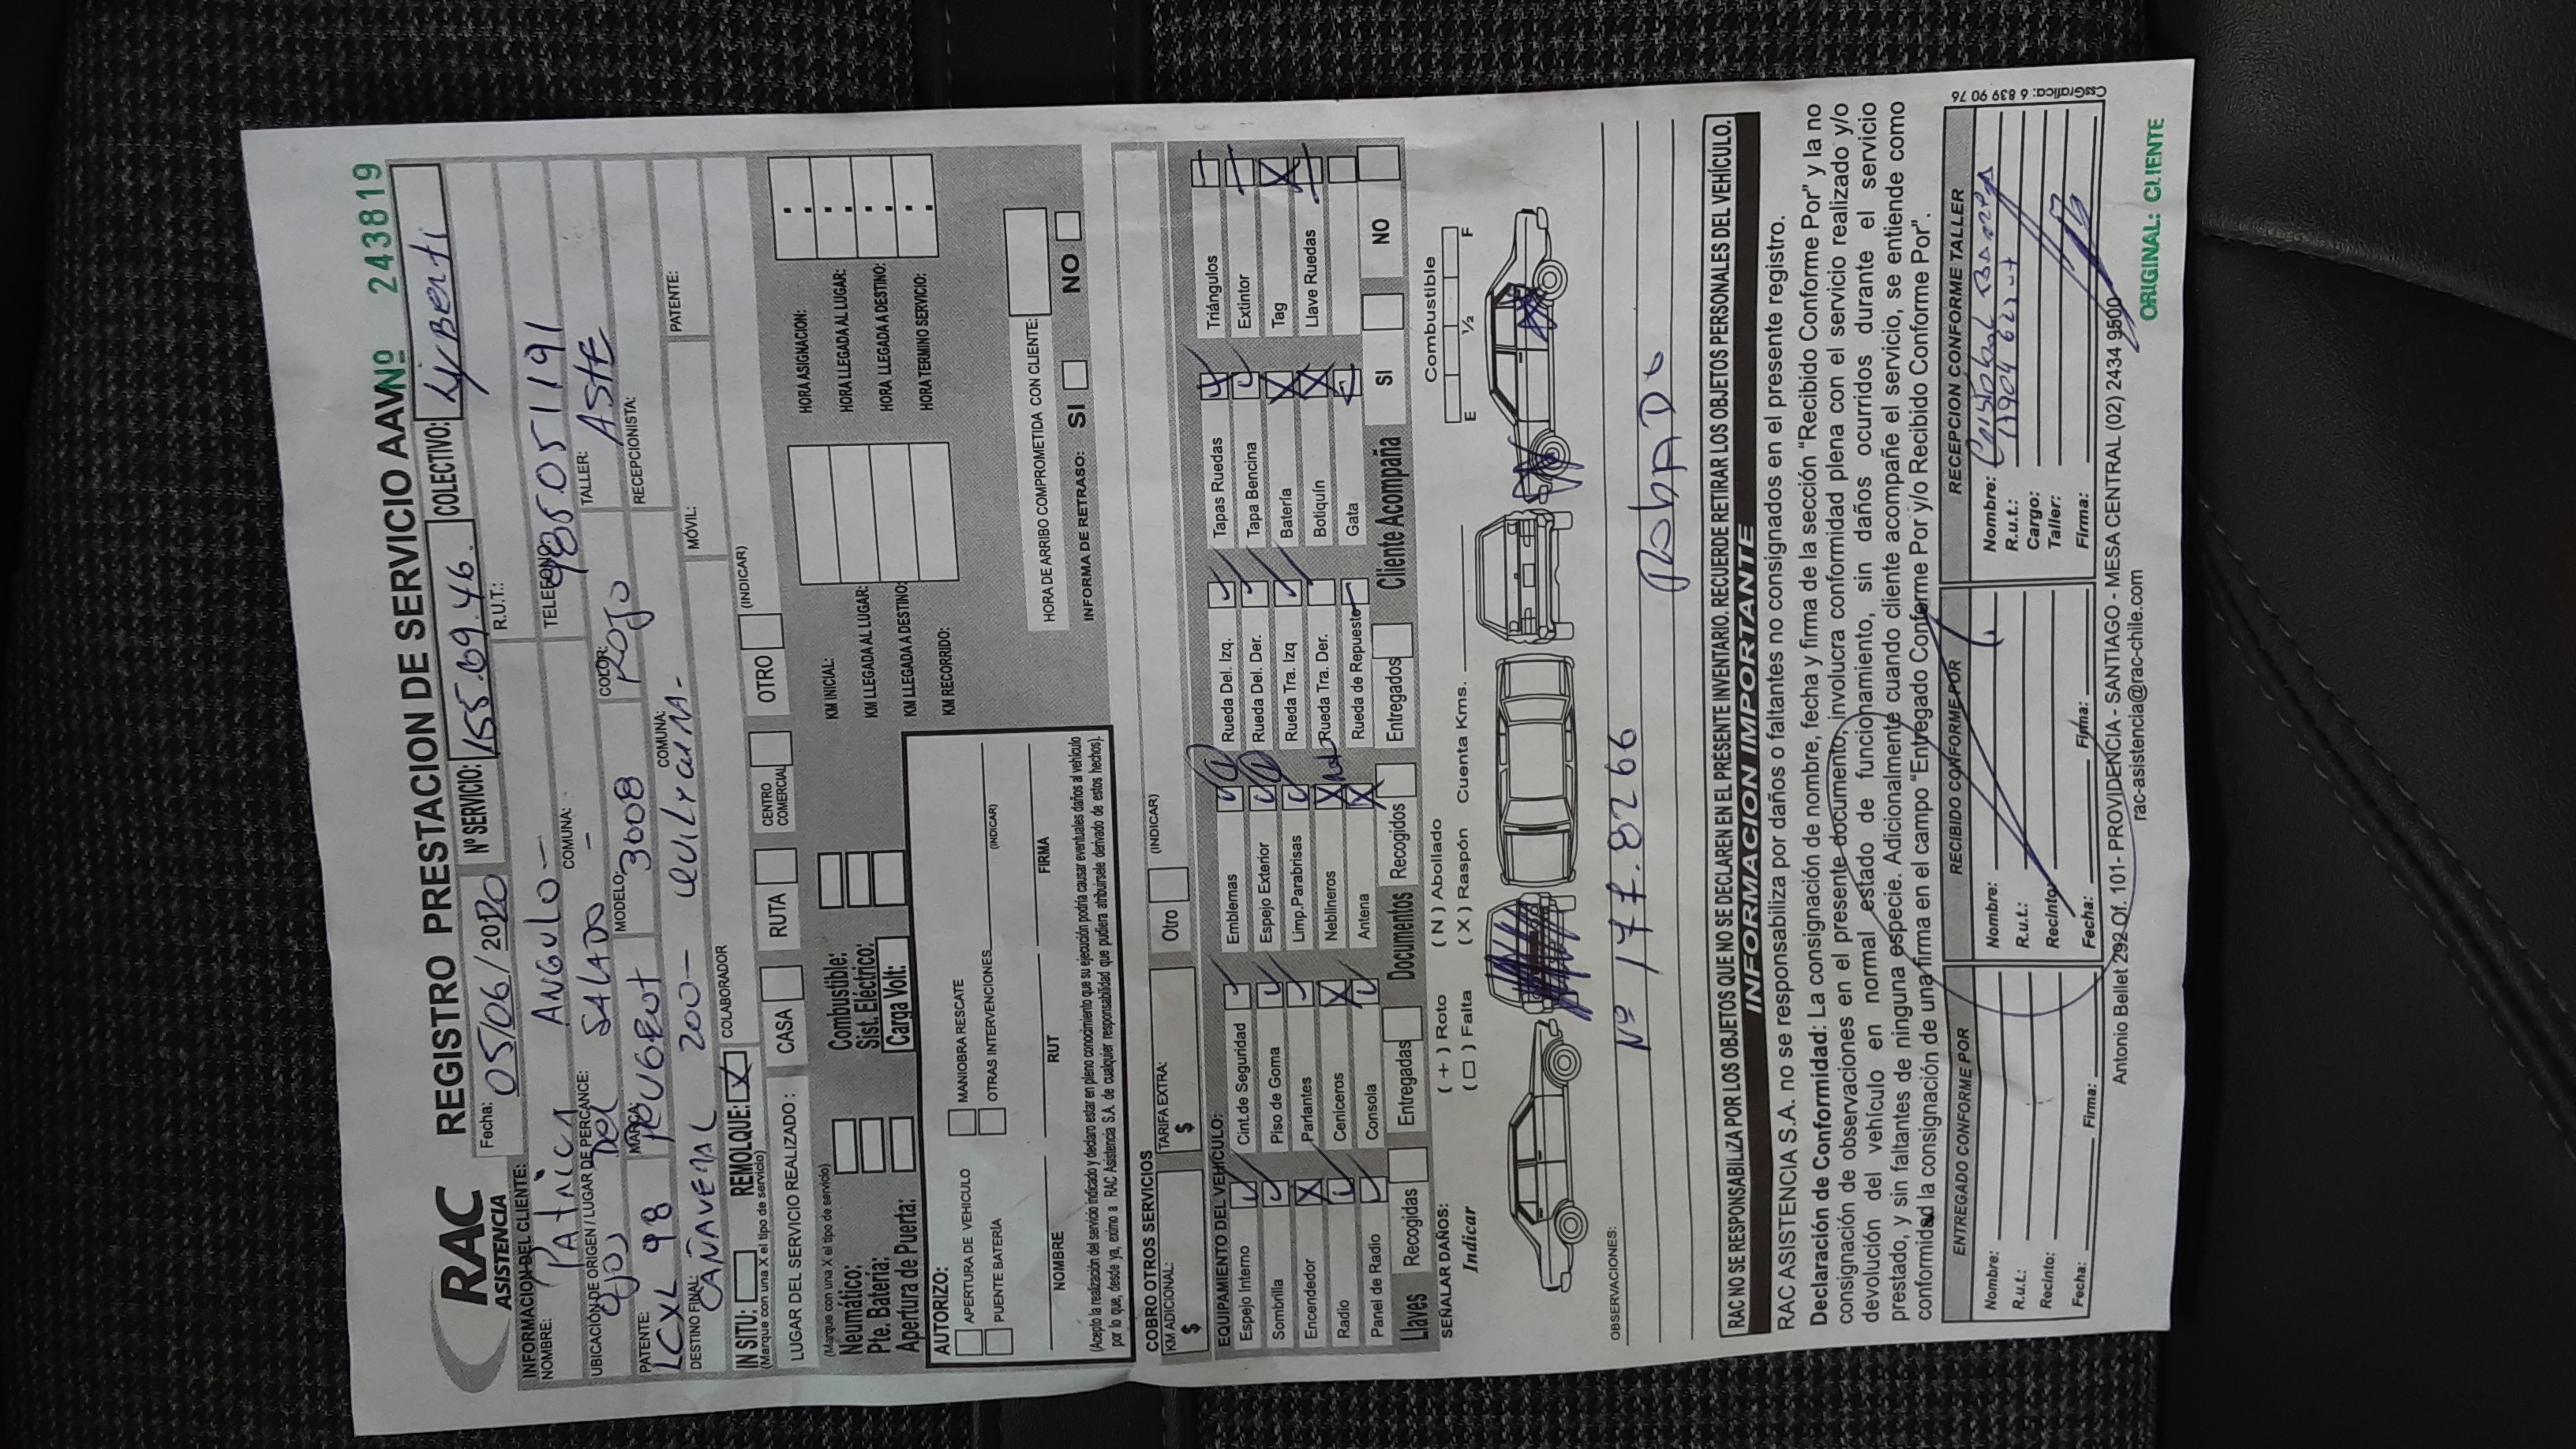 RAC
ASISTENCIA
REGISTRO PRESTACION DE SERVICIO AAV Nº 243819
Fecha: 05/06/2020 Nº SERVICIO: 155.09.46. COLECTIVO:
INFORMACION DEL CLIENTE:
NOMBRE: PAtRiCA ANGULO - R.U.T.:
UBICACIÓN DE ORIGEN / LUGAR DE PERCANCE: OJOS Del SALADO - COMUNA: TELEFONO: 985051191
PATENTE: LCXL 98 MARCA: PEUGEOT MODELO: 3008 COLOR: ROJO TALLER: ASTE
DESTINO FINAL: CAÑAVERAL 200- COMUNA: QUILICURA- RECEPCIONISTA:
IN SITU: REMOLQUE: X COLABORADOR MÓVIL: PATENTE:
(Marque con una X el tipo de servicio)
LUGAR DEL SERVICIO REALIZADO: CASA RUTA CENTRO COMERCIAL OTRO (INDICAR)
(Marque con una X el tipo de servicio)
Neumático: Combustible:
Pte. Batería: Sist. Eléctrico:
Apertura de Puerta: Carga Volt:
KM INICIAL:
KM LLEGADA AL LUGAR:
KM LLEGADA A DESTINO:
KM RECORRIDO:
HORA ASIGNACION:
HORA LLEGADA AL LUGAR:
HORA LLEGADA A DESTINO:
HORA TERMINO SERVICIO:
AUTORIZO:
APERTURA DE VEHICULO MANIOBRA RESCATE
PUENTE BATERÍA OTRAS INTERVENCIONES (INDICAR)
NOMBRE RUT FIRMA
(Acepto la realización del servicio indicado y declaro estar en pleno conocimiento que su ejecución podría causar eventuales daños al vehículo
por lo que, desde ya, eximo a RAC Asistencia S.A. de cualquier responsabilidad que pudiera atribuirsele derivado de estos hechos).
HORA DE ARRIBO COMPROMETIDA CON CLIENTE:
INFORMA DE RETRASO: SI NO
COBRO OTROS SERVICIOS
KM ADICIONAL: $ TARIFA EXTRA: $ Otro (INDICAR)
EQUIPAMIENTO DEL VEHICULO:
Espejo Interno Cint.de Seguridad Emblemas Rueda Del. Izq. Tapas Ruedas Triángulos
Sombrilla Piso de Goma Espejo Exterior Rueda Del. Der. Tapa Bencina Extintor
Encendedor Parlantes Limp.Parabrisas Rueda Tra. Izq Batería Tag
Radio Ceniceros Neblineros Rueda Tra. Der. Botiquín Llave Ruedas
Panel de Radio Consola Antena Rueda de Repuesto Gata
Llaves Recogidas Entregadas Documentos Recogidos Entregados Cliente Acompaña SI NO
SEÑALAR DAÑOS: ( + ) Roto ( N ) Abollado
Indicar ( □ ) Falta ( X ) Raspón Cuenta Kms. Combustible
E ½ F
OBSERVACIONES: Nº 177.8266
RobADo
RAC NO SE RESPONSABILIZA POR LOS OBJETOS QUE NO SE DECLAREN EN EL PRESENTE INVENTARIO. RECUERDE RETIRAR LOS OBJETOS PERSONALES DEL VEHÍCULO.
INFORMACION IMPORTANTE
RAC ASISTENCIA S.A. no se responsabiliza por daños o faltantes no consignados en el presente registro.
Declaración de Conformidad: La consignación de nombre, fecha y firma de la sección "Recibido Conforme Por" y la no
consignación de observaciones en el presente documento, involucra conformidad plena con el servicio realizado y/o
devolución del vehículo en normal estado de funcionamiento, sin daños ocurridos durante el servicio
prestado, y sin faltantes de ninguna especie. Adicionalmente cuando cliente acompañe el servicio, se entiende como
conformidad la consignación de una firma en el campo "Entregado Conforme Por y/o Recibido Conforme Por".
ENTREGADO CONFORME POR
Nombre:
R.u.t.:
Recinto:
Fecha: Firma:
RECIBIDO CONFORME POR
Nombre:
R.u.t.:
Recinto:
Fecha: Firma:
RECEPCION CONFORME TALLER
Nombre: Cristobal
R.u.t.:
Cargo:
Taller:
Firma:
CssGrafica: 6 839 90 76
Antonio Bellet 292 Of. 101- PROVIDENCIA - SANTIAGO - MESA CENTRAL (02) 2434 9500
rac-asistencia@rac-chile.com
ORIGINAL: CLIENTE